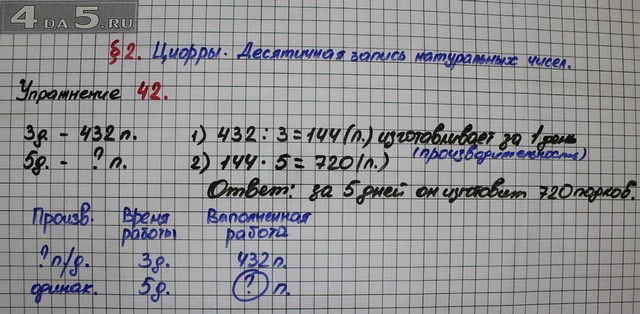 4 DA 5.RU
§2. Цифры. Десятичная запись натуральных чисел.
Упражнение 42.
3д. - 432п. 1) 432 : 3 = 144 (п.) изготавливает за 1 день
(производительность)
5д. - ? п. 2) 144 · 5 = 720 (п.)
Ответ: за 5 дней он изготовит 720 парков.
Произв. Время работы Выполненная работа
? п/д. 3д. 432п.
одинак. 5д. ? п.